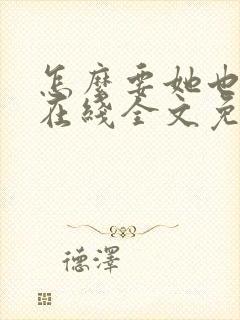 怎麼要她也
在綫全文免
德澤